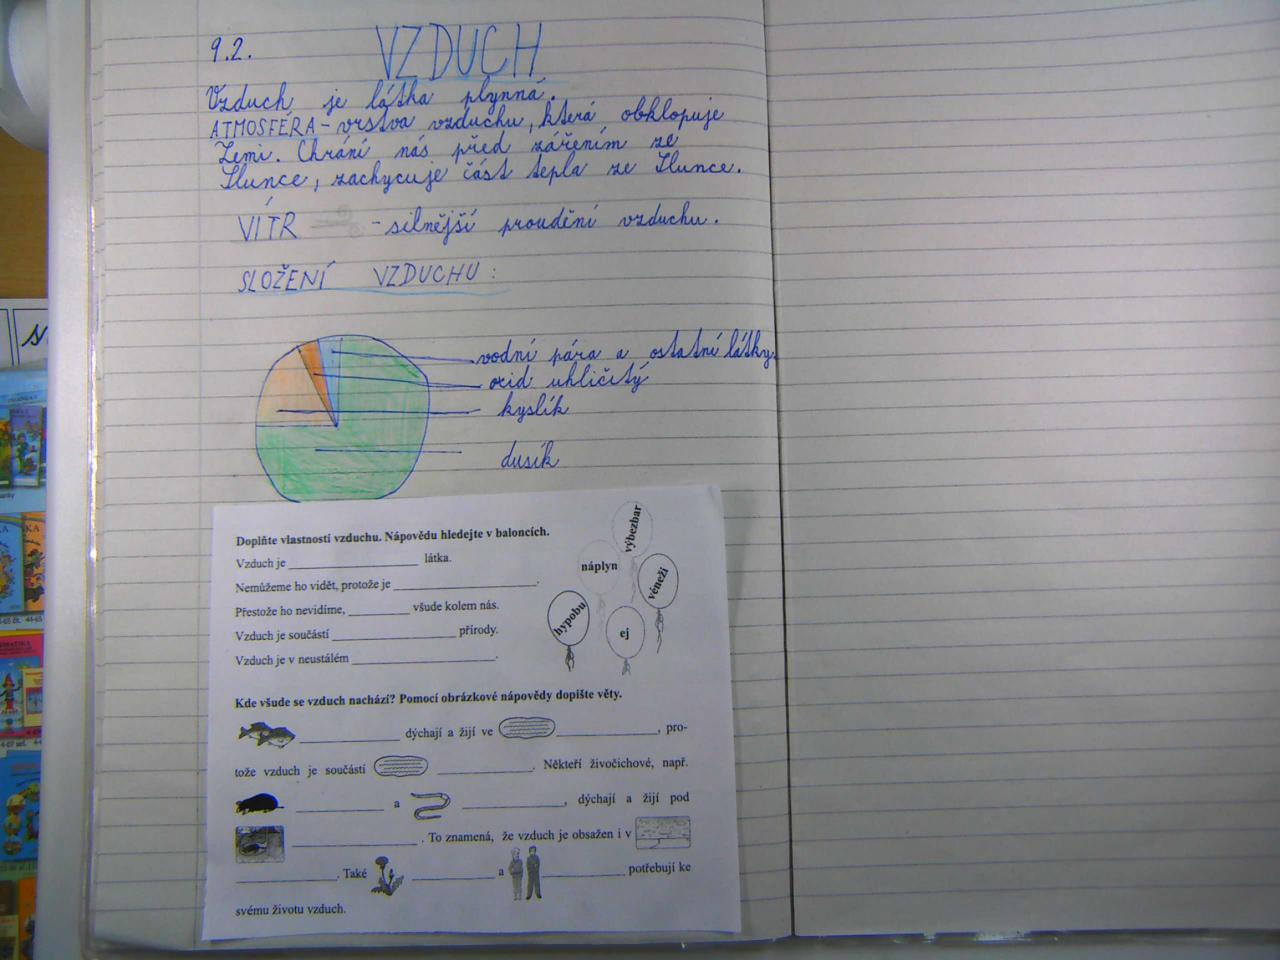 9.2. VZDUCH
Vzduch je látka plynná.
ATMOSFÉRA - vrstva vzduchu, která obklopuje
Zemi. Chrání nás před zářením ze
Slunce, zachycuje část tepla ze Slunce.
VÍTR - silnější proudění vzduchu.
SLOŽENÍ VZDUCHU:
vodní pára a ostatní látky
oxid uhličitý
kyslík
dusík
Doplňte vlastnosti vzduchu. Nápovědu hledejte v baloncích.
Vzduch je ____________ látka.
Nemůžeme ho vidět, protože je ____________.
Přestože ho nevidíme, ________ všude kolem nás.
Vzduch je součástí ____________ přírody.
Vzduch je v neustálém ____________.
výbezbar
náplyn
véneži
hypobu
ej
Kde všude se vzduch nachází? Pomocí obrázkové nápovědy dopište věty.
____________ dýchají a žijí ve ____________, pro-
tože vzduch je součástí ____________. Někteří živočichové, např.
____________ a ____________, dýchají a žijí pod
____________. To znamená, že vzduch je obsažen i v
____________. Také ____________ a ____________ potřebují ke
svému životu vzduch.